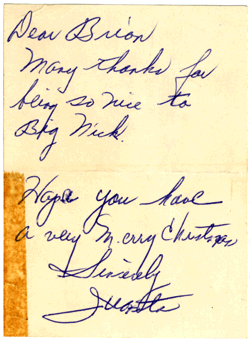 Dear Brian
Many thanks for
being so nice to
Big Nick.
Hope you have
a very Merry Christmas
Sincerely
Juanita